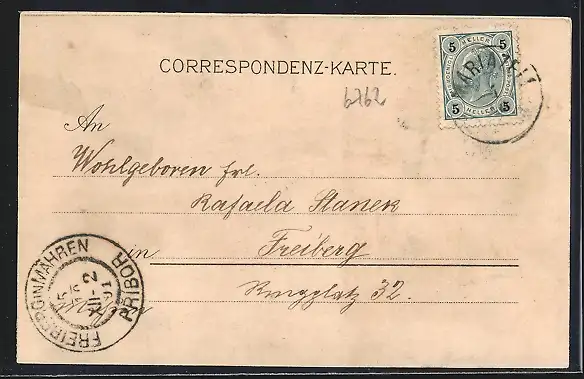 CORRESPONDENZ-KARTE.
5 HELLER 5
5 HELLER 5
MARIAZELL
6762
An
Wohlgeboren Frl.
Rafaela Stanek
in Freiberg
Ringplatz 32.
FREIBERG IN MÄHREN
PŘIBOR